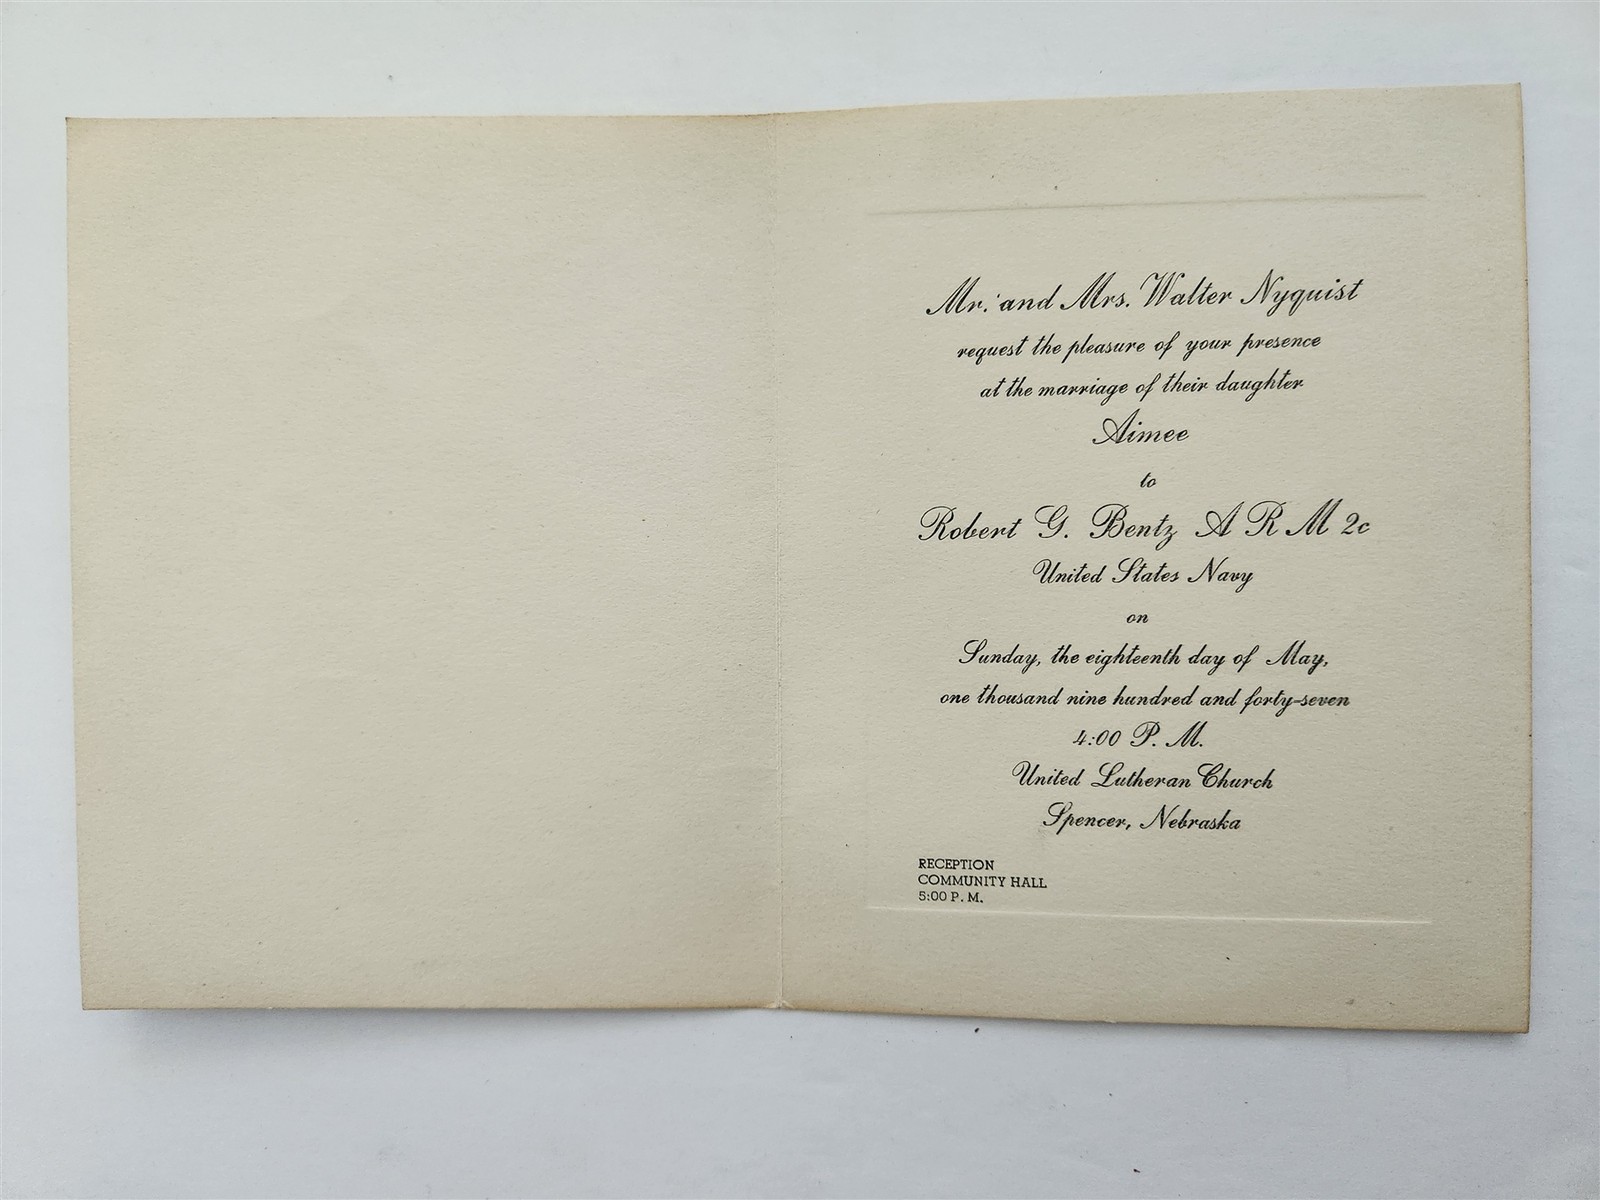 Mr. and Mrs. Walter Nyquist
request the pleasure of your presence
at the marriage of their daughter
Aimee
to
Robert G. Bentz A R M 2c
United States Navy
on
Sunday, the eighteenth day of May,
one thousand nine hundred and forty-seven
4:00 P. M.
United Lutheran Church
Spencer, Nebraska
RECEPTION
COMMUNITY HALL
5:00 P. M.